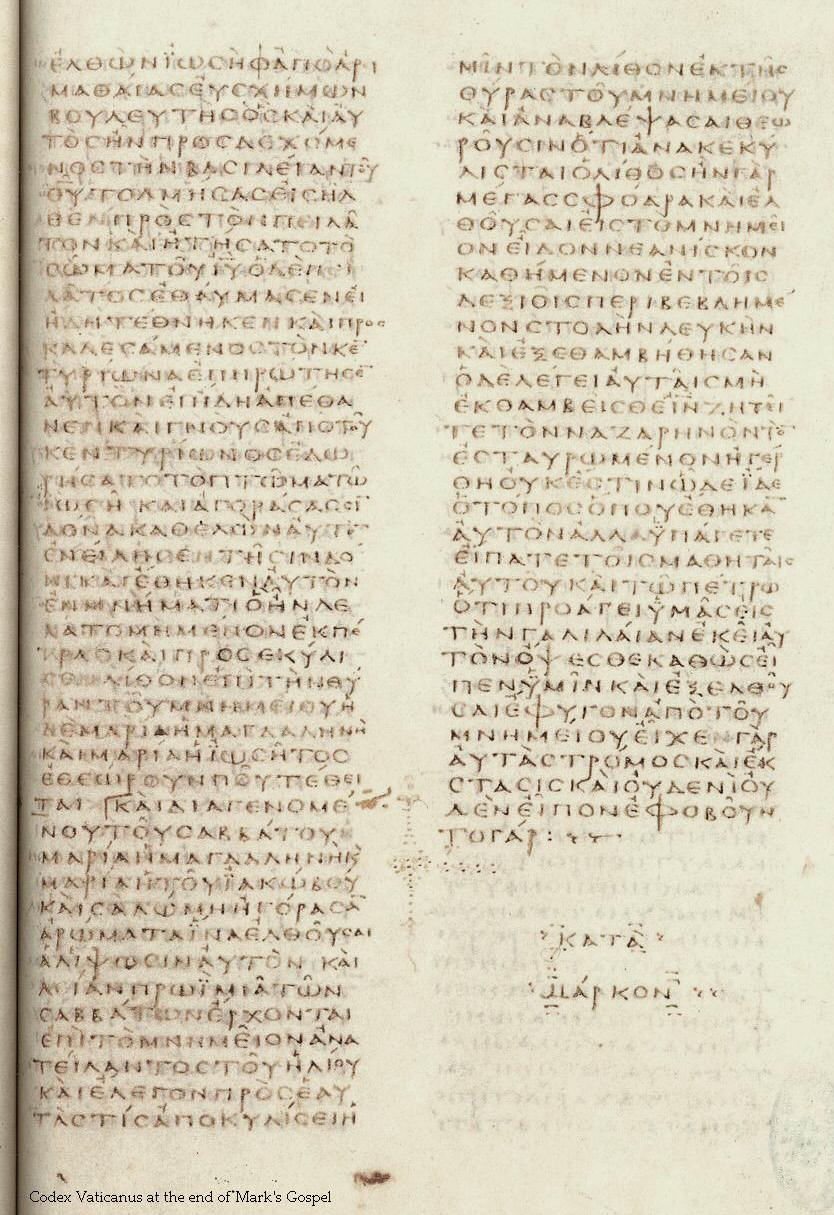 ΕΛΘΩΝΙΩΣΗΦΑΠΟΑΡΙ
ΜΑΘΑΙΑΣΕΥΣΧΗΜΩΝ
ΒΟΥΛΕΥΤΗΣΟΣΚΑΙΑΥ
ΤΟΣΗΝΠΡΟΣΔΕΧΟΜΕ
ΝΟΣΤΗΝΒΑΣΙΛΕΙΑΝΤΟΥ
ΘΥΤΟΛΜΗΣΑΣΕΙΣΗΛ
ΘΕΝΠΡΟΣΤΟΝΠΕΙΛΑ
ΤΟΝΚΑΙΗΤΗΣΑΤΟΤΟ
ΣΩΜΑΤΟΥΙΥΟΔΕΠΕΙ
ΛΑΤΟΣΕΘΑΥΜΑΣΕΝΕΙ
ΗΔΗΤΕΘΝΗΚΕΝΚΑΙΠΡΟΣ
ΚΑΛΕΣΑΜΕΝΟΣΤΟΝΚΕ
ΤΥΡΙΩΝΑΕΠΗΡΩΤΗΣΕ
ΑΥΤΟΝΕΙΗΔΗΑΠΕΘΑ
ΝΕΝΚΑΙΓΝΟΥΣΑΠΟΤΟΥ
ΚΕΝΤΥΡΙΩΝΟΣΕΔΩ
ΡΗΣΑΤΟΤΟΠΤΩΜΑΤΩ
ΙΩΣΗ ΚΑΙΑΓΟΡΑΣΑΣΣΙ
ΔΟΝΑΚΑΘΕΛΩΝΑΥΤΟ
ΕΝΕΙΛΗΣΕΝΤΗΣΙΝΔΟ
ΝΙΚΑΙΕΘΗΚΕΝΑΥΤΟΝ
ΕΝΜΝΗΜΑΤΙΟΗΝΛΕ
ΛΑΤΟΜΗΜΕΝΟΝΕΚΠΕ
ΤΡΑΣΚΑΙΠΡΟΣΕΚΥΛΙ
ΣΕΝΛΙΘΟΝΕΠΙΤΗΝΘΥ
ΡΑΝΤΟΥΜΝΗΜΕΙΟΥΗ
ΔΕΜΑΡΙΑΗΜΑΓΔΑΛΗΝΗ
ΚΑΙΜΑΡΙΑΗΙΩΣΗΤΟΣ
ΕΘΕΩΡΟΥΝΠΟΥΤΕΘΕΙ
ΤΑΙ ΚΑΙΔΙΑΓΕΝΟΜΕ
ΝΟΥΤΟΥΣΑΒΒΑΤΟΥ
ΜΑΡΙΑΗΜΑΓΔΑΛΗΝΗΚ
ΜΑΡΙΑΗΤΟΥΙΑΚΩΒΟΥ
ΚΑΙΣΑΛΩΜΗΗΓΟΡΑΣΑ
ΑΡΩΜΑΤΑΙΝΑΕΛΘΟΥΣΑΙ
ΑΛΙΨΩΣΙΝΑΥΤΟΝ ΚΑΙ
ΛΕΙΑΝΠΡΩΙΜΙΑΤΩΝ
ΣΑΒΒΑΤΩΝΕΡΧΟΝΤΑΙ
ΕΠΙΤΟΜΝΗΜΕΙΟΝΑΝΑ
ΤΕΙΛΑΝΤΟΣΤΟΥΗΛΙΟΥ
ΚΑΙΕΛΕΓΟΝΠΡΟΣΕΑΥ
ΤΑΣΤΙΣΑΠΟΚΥΛΙΣΕΙΗ
ΜΙΝΤΟΝΛΙΘΟΝΕΚΤΗΣ
ΘΥΡΑΣΤΟΥΜΝΗΜΕΙΟΥ
ΚΑΙΑΝΑΒΛΕΨΑΣΑΙΘΕΩ
ΡΟΥΣΙΝΟΤΙΑΝΑΚΕΚΥ
ΛΙΣΤΑΙΟΛΙΘΟΣΗΝΓΑΡ
ΜΕΓΑΣΣΦΟΔΡΑΚΑΙΕΛ
ΘΟΥΣΑΙΕΙΣΤΟΜΝΗΜΕΙ
ΟΝΕΙΔΟΝΝΕΑΝΙΣΚΟΝ
ΚΑΘΗΜΕΝΟΝΕΝΤΟΙΣ
ΔΕΞΙΟΙΣΠΕΡΙΒΕΒΛΗΜΕ
ΝΟΝΣΤΟΛΗΝΛΕΥΚΗΝ
ΚΑΙΕΞΕΘΑΜΒΗΘΗΣΑΝ
ΟΔΕΛΕΓΕΙΑΥΤΑΙΣΜΗ
ΕΚΘΑΜΒΕΙΣΘΕΙΝΖΗΤΕΙ
ΤΕΤΟΝΝΑΖΑΡΗΝΟΝΤΟ
ΕΣΤΑΥΡΩΜΕΝΟΝΗΓΕΡ
ΘΗΟΥΚΕΣΤΙΝΩΔΕΙΔΕ
ΟΤΟΠΟΣΟΠΟΥΕΘΗΚΑ
ΑΥΤΟΝΑΛΛΑΥΠΑΓΕΤΕ
ΕΙΠΑΤΕΤΟΙΣΜΑΘΗΤΑΙΣ
ΑΥΤΟΥΚΑΙΤΩΠΕΤΡΩ
ΟΤΙΠΡΟΑΓΕΙΥΜΑΣΕΙΣ
ΤΗΝΓΑΛΙΛΑΙΑΝΕΚΕΙΑΥ
ΤΟΝΟΨΕΣΘΕΚΑΘΩΣΕΙ
ΠΕΝΥΜΙΝΚΑΙΕΞΕΛΘΟΥ
ΣΑΙΕΦΥΓΟΝΑΠΟΤΟΥ
ΜΝΗΜΕΙΟΥΕΙΧΕΝΓΑΡ
ΑΥΤΑΣΤΡΟΜΟΣΚΑΙΕΚ
ΣΤΑΣΙΣΚΑΙΟΥΔΕΝΙΟΥ
ΔΕΝΕΙΠΟΝΕΦΟΒΟΥΝ
ΤΟΓΑΡ:
ΚΑΤΑ
ΜΑΡΚΟΝ
Codex Vaticanus at the end of Mark's Gospel